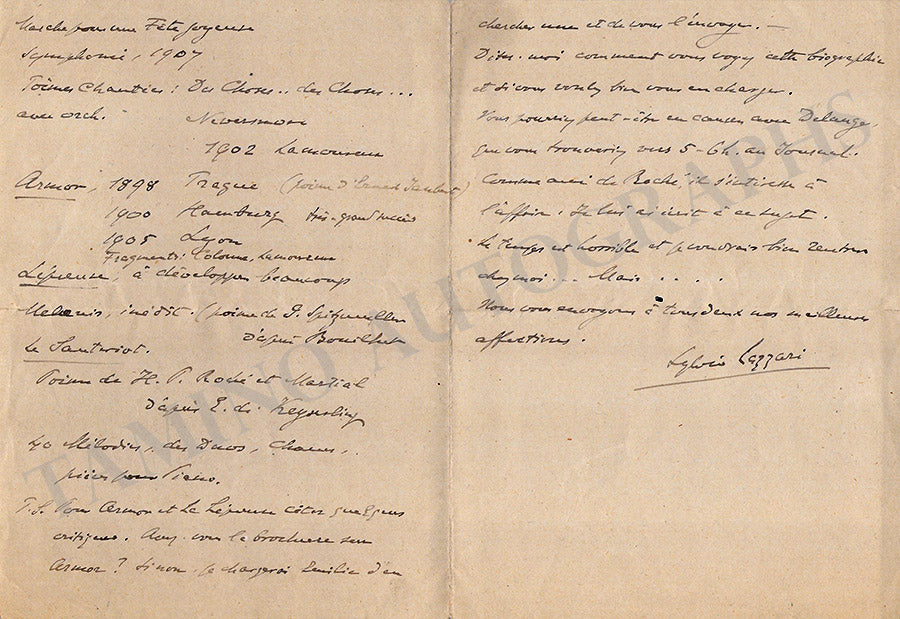 Marche pour une Fête joyeuse
Symphonie, 1907
Poèmes Chantés : Des Choses.. des Choses...
avec orch. Nevermore
1902 Lamoureux
Armor, 1898 Prague (poème d'Ernest Jaubert)
1900 Hamburg très-grand succès
1905 Lyon
Fragments: Colonne, Lamoureux
Lépreuse à développer beaucoup
Melaenis, inédit. (poème de G. Spitzmuller
d'après Bouilhet
Le Sautériot.
Poème de H. P. Roché et Martial
d'après E. de Keyserling
40 Mélodies, des Duos, Chœurs,
pièces pour Piano.
P.S. Pour Armor et La Lépreuse citez quelques
critiques. Avez-vous la brochure sur
Armor? Sinon, je chargerai Emilie d'en
chercher une et de vous l'envoyer. —
Dites-moi comment vous voyez cette biographie
et si vous voulez bien vous en charger.
Vous pourriez peut-être en causer avec Delange
que vous trouverez vers 5-6h. au Journal.
Comme ami de Roché, il s'intéresse à
l'affaire. Je lui ai écrit à ce sujet.
Le temps est horrible et je voudrais bien rentrer
chez moi... Mais.....
Nous vous envoyons à tous deux nos meilleures
affections.
Sylvio Lazzari
TAMINO AUTOGRAPHS